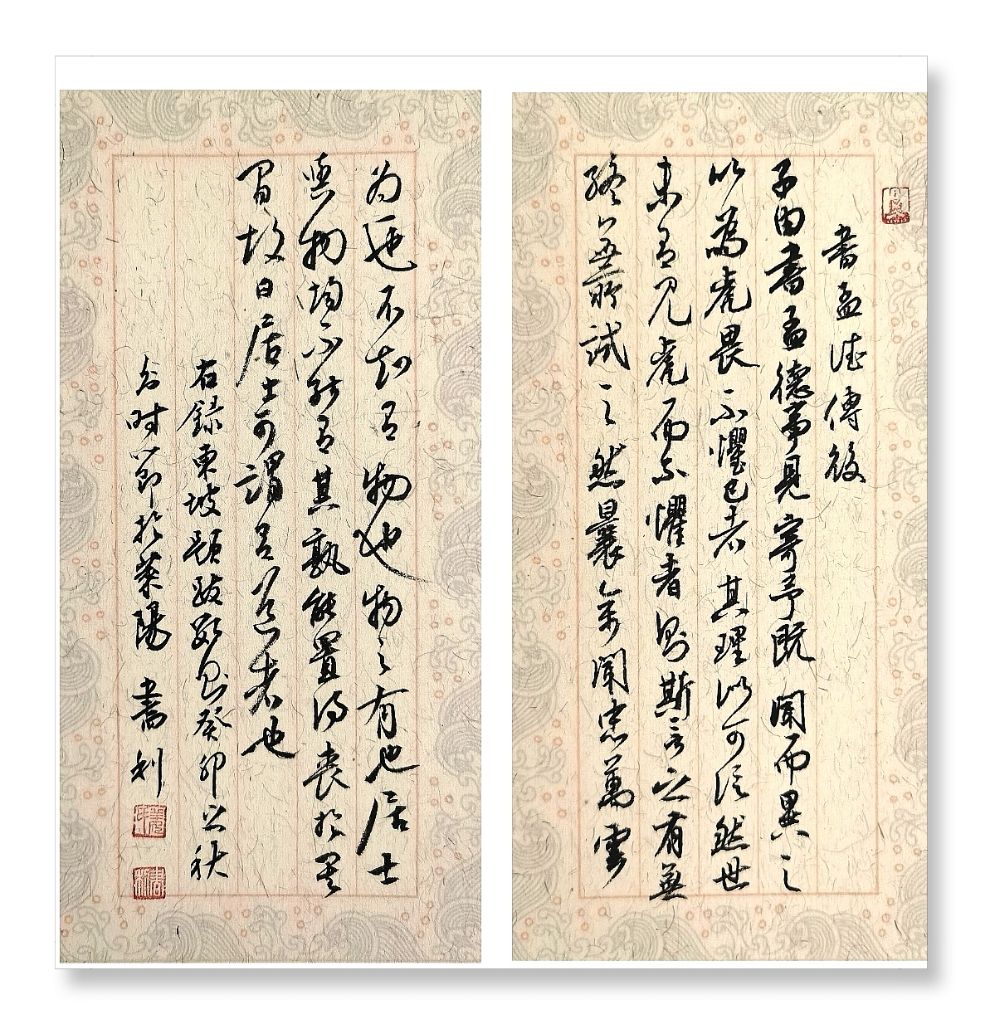 書孟德傳後
子由書孟德事見寄予既聞而異之
以為虎畏不懼己者其理似可信然世
未有見虎而不懼者則斯言之有無
終無所試之然曩余聞忠萬雲
為一也不知有物也物之有也居士
與物均不能有其孰能置得喪於其
間故曰居士可謂有道者也
右錄東坡題跋數則癸卯之秋
分时節於萊陽